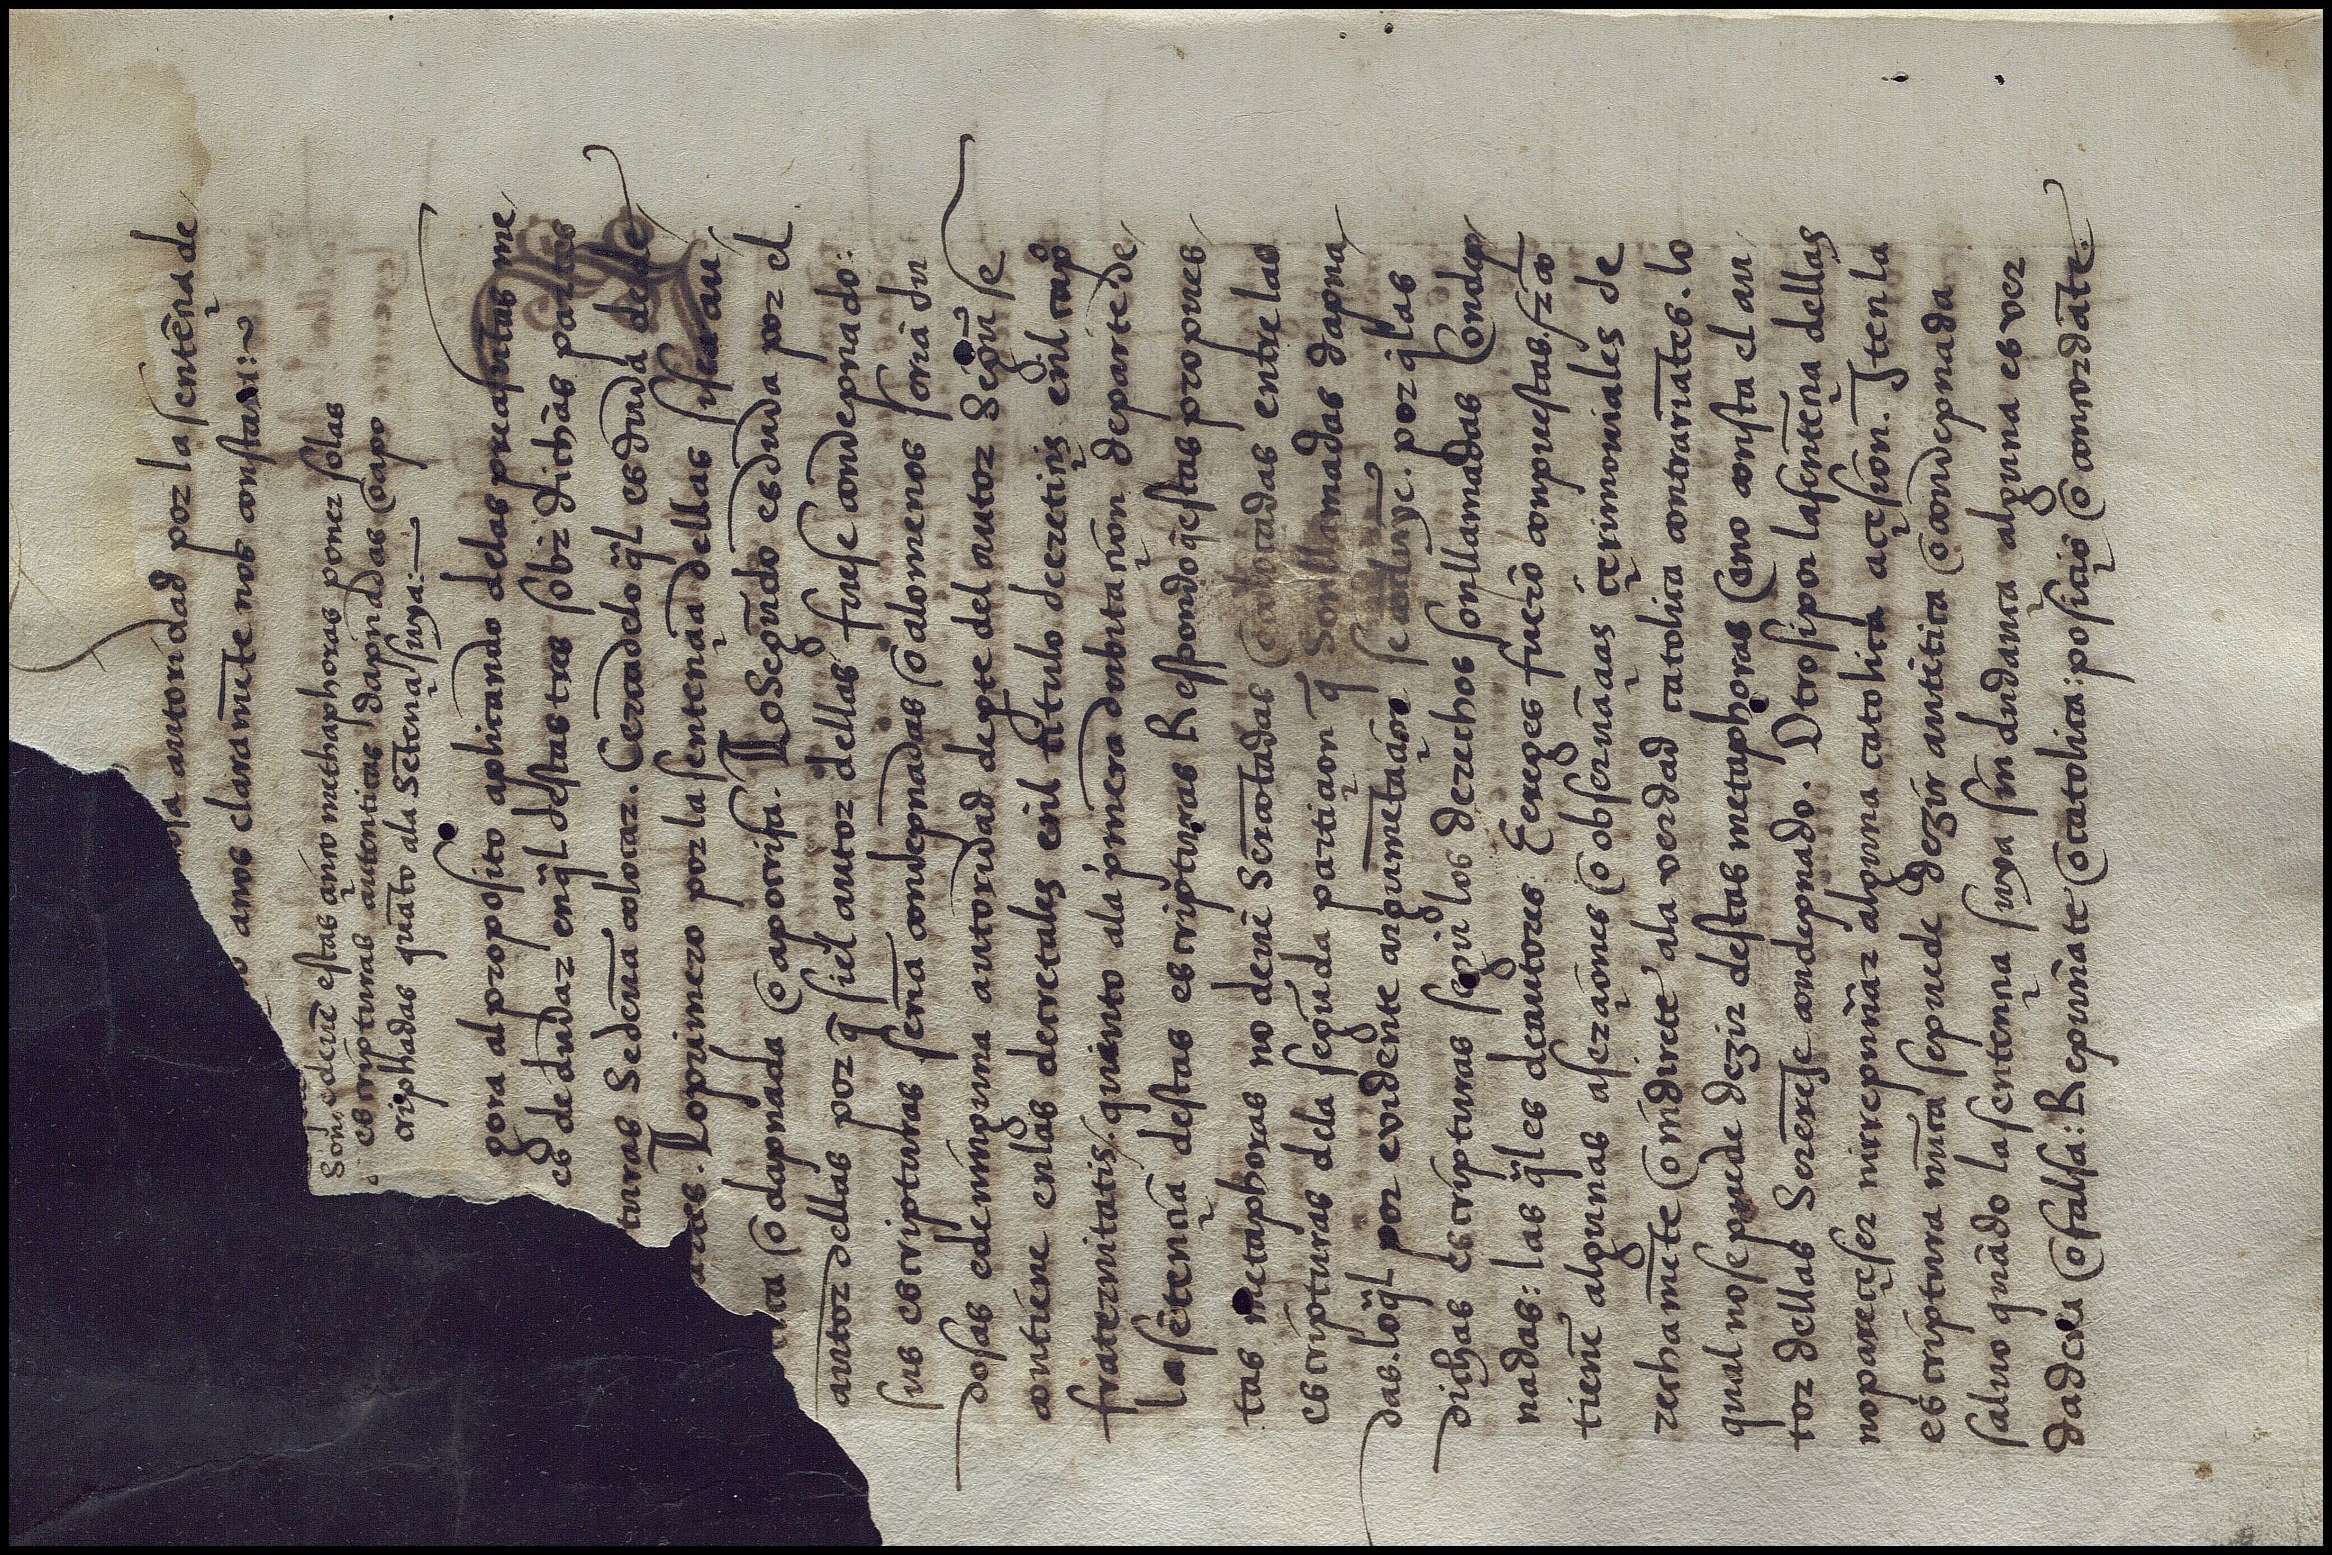 autoridad por la sentēçia de
amos claramēte nos consta
Son o deuē estas q̄nto methaphoras poner solas
escripturas autenticas dapnadas o apo
criphadas quāto ala sētençia suya:
gora al proposito aplicando delas preasuntas me
es de dudar en q̄l destas tres sobr dichas partes
turas se deuā colocar. Cerca delo q̄l es duda desde
Lo primero por la sentençia dellas si sea au
o dapnada o apocrifa. Lo Segūdo es duda por el
autor dellas por q̄ si el autor dellas fuese condepnado:
sus escripturas seriā condepnadas o alo menos seriā du
dosas e de ninguna autoridad de pte del autor Segū se
contiene en las decretales en l titulo de cretiis en l cap̄
fraternitatis. quanto ala primera dubitaçion de parte de
la sētençia destas escripturas Respondo q̄ estas propues
tas metaphoras no deuē Ser contadas o colocadas entre las
escripturas dela segūda partiçion q̄ Son llamadas dapna
das. lo q̄l por euidente argumētaçion se concluye. por q̄ las
dichas escripturas segū los derechos son llamadas Condep
nadas: las q̄les de autores Ereges fuerō compuestas
tienē algunas aserçiones o obseruāças çerimoniales de
rechamēte o indirecte ala verdad catolica contrariātes. lo
qual no se puede dezir destas metaphoras Ca no consta el au
tor dellas Ser erese condepnado. Otrosi por la sentēçia dellas
no pareçe ser ni repuñar alguna catolica açesion. Iten la
escriptura nūca se puede dezir autētica o condepnada
saluo quādo la sentençia suya sin dudança alguna es ver
dadera o falsa: Repuñāte o catolica: posiçiō o concordāte.